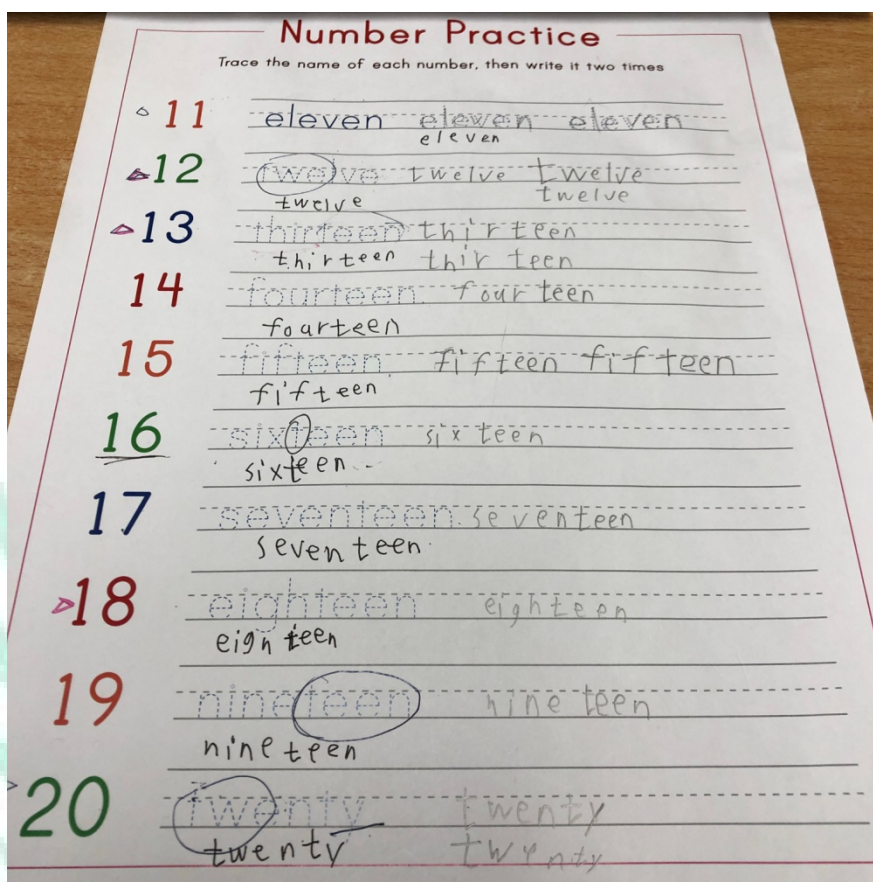 Number Practice
Trace the name of each number, then write it two times
11 eleven elewen eleven
eleven
12 twelve twelve twelve
twelve twelve
13 thirteen thirteen
thirteen thir teen
14 fourteen four teen
fourteen
15 fifteen fifteen fifteen
fifteen
16 sixteen six teen
sixteen
17 seventeen seventeen
seventeen
18 eighteen eighteen
eighteen
19 nineteen nine teen
nineteen
20 twenty twenty
twenty twenty